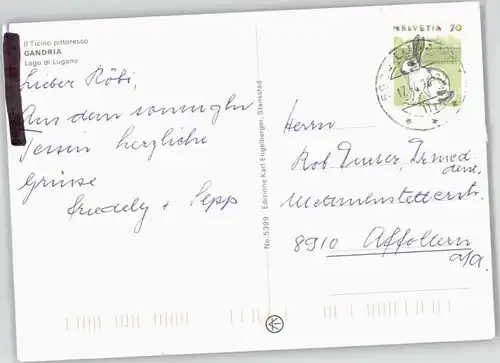 Il Ticino pittoresco
GANDRIA
Lago di Lugano
Lieber Röbi,
Aus dem sonnigen
Tessin herzliche
Grüsse
Friedely + Sepp
No. 5399 Edizione Karl Engelberger, Stansstad
HELVETIA 70
Herrn
Rob. Dr. med.
dent.
8910 Affoltern
a/A.